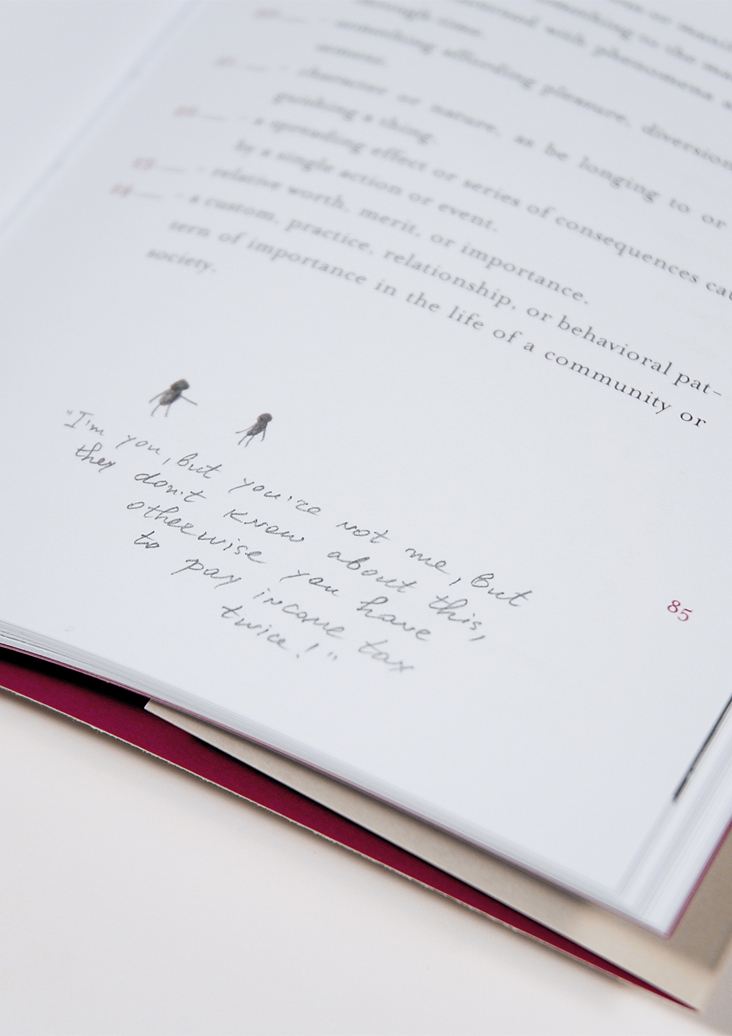 through time.
something affording pleasure, diversion
character or nature, as be longing to or
guishing a thing.
- a spreading effect or series of consequences cau
by a single action or event.
- relative worth, merit, or importance.
- a custom, practice, relationship, or behavioral pat-
tern of importance in the life of a community or
society.
"I'm you, but you're not me, But
they don't know about this,
otherwise you have
to pay income tax
twice!"
85